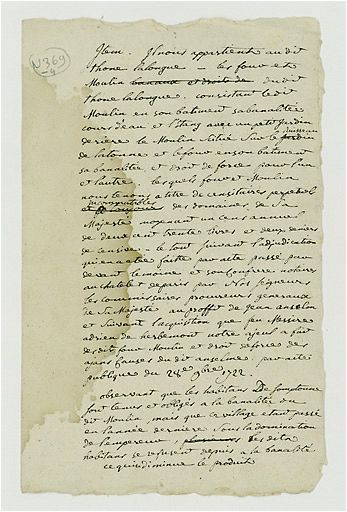 N 369
4
Item. Il nous appartient audit
Thone lalongue - les four et
Moulin banaux et droit de du dit
Thone lalongue, consistant ledit
Moulin en son batiment sa banalitée
cours d'eau et l'Etang avec un petit jardin
deriere le Moulin située sur le jardin
ruisseau
de latonne et le four en son batiment
sa banalitée et droit de force pour l'un
et l'autre, lesquels four et Moulin
nous tenons a titre de censitaires perpetuels
incomutables
et des domaines de Sa
Majesté moyenant un cens annuel
de deux cent trente livres et deux deniers
de censive - le tout suivant l'adjudication
qui en a etée faite par acte passé par
devant Lemoine et son confrere notaires
au chatelet de paris par Nos Seigneurs
les commissaires procureurs generaux
de Sa Majesté au proffit de Jean anselme
et suivant l'acquisition que feu Messire
adrien de herbemont notre ayeul a fait
des dit four Moulin et droit de force des
ayans causes du dit anselme, par acte
publique du 28e 9bre 1722.
observant que les habitans De
sont tenus et obligés a la banalitée du
dit Moulin, mais que ce village etant passé
en l'année derniere sous la domination
de l'empereur, les dits
habitans se refusent depuis a la banalité
ce qui diminue le produit